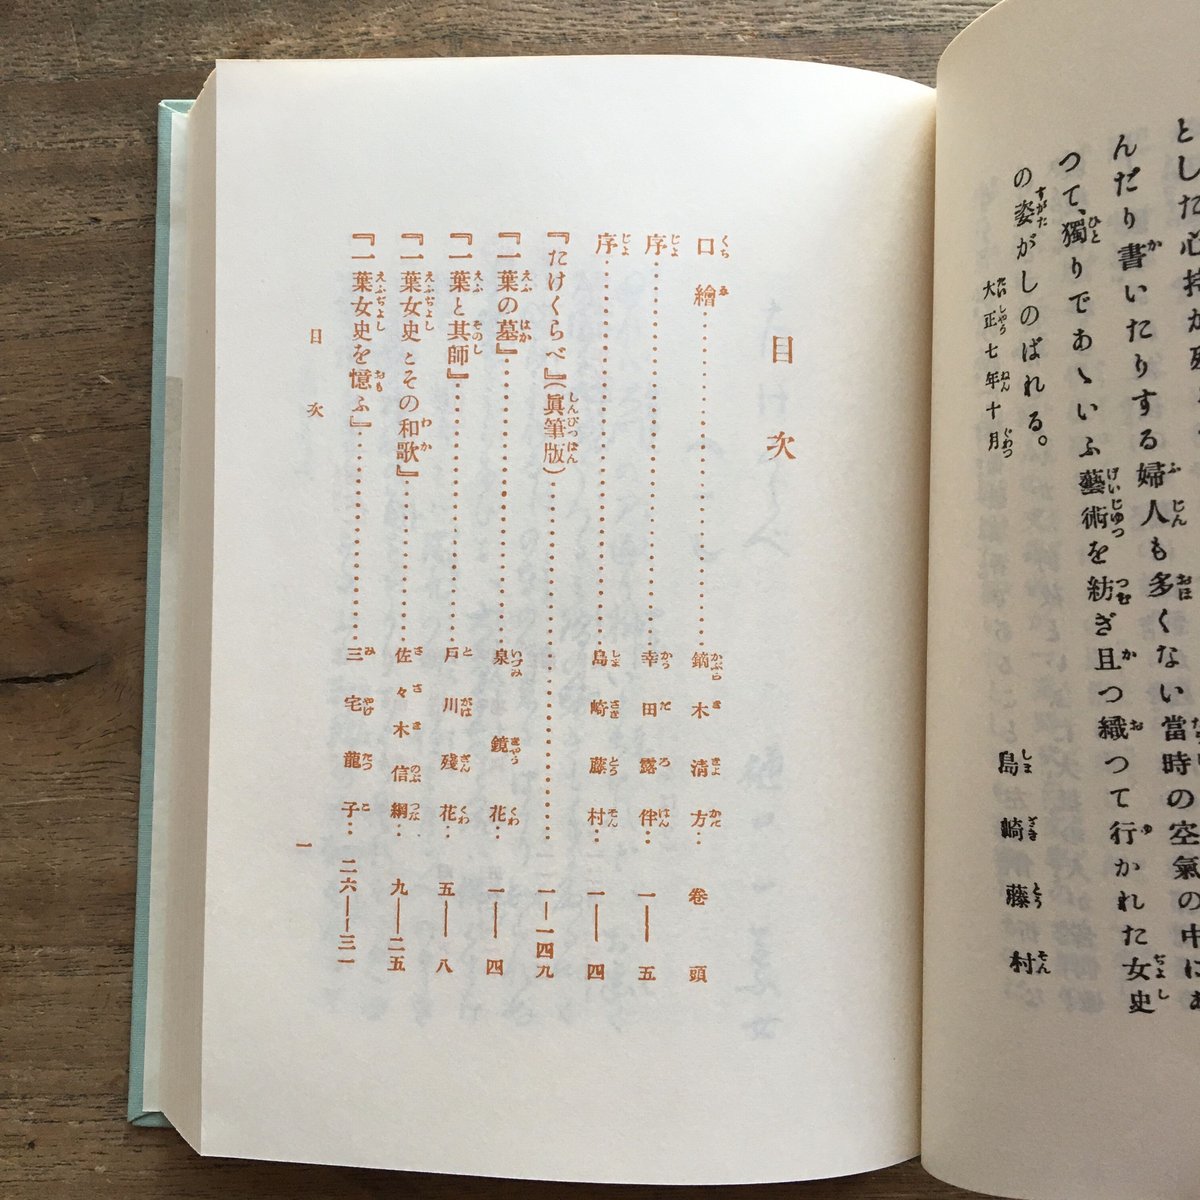 とした心持が
んだり書いたりする婦人も多くない當時の空氣の中に
つて、獨りでああいふ藝術を紡ぎ且つ織つて行かれた女史
の姿がしのばれる。
大正七年十月
島崎藤村
目次
口繪…鏑木清方…卷頭
序…幸田露伴…一—五
序…島崎藤村…一—四
『たけくらべ』(眞筆版)…一—一四九
『一葉の墓』…泉鏡花…一—四
『一葉と其師』…戸川殘花…五—八
『一葉女史とその和歌』…佐々木信綱…九—二五
『一葉女史を憶ふ』…三宅龍子…二六—三一
目次
一